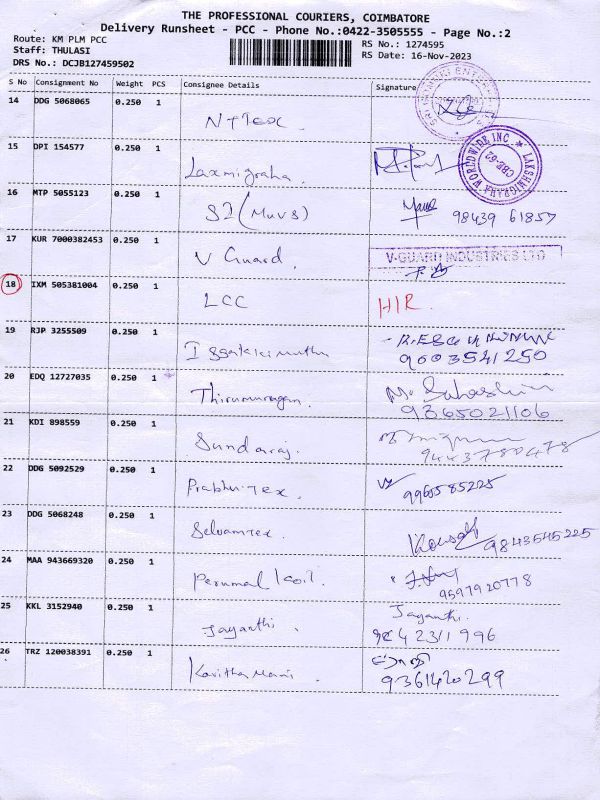 THE PROFESSIONAL COURIERS, COIMBATORE
Delivery Runsheet - PCC - Phone No.:0422-3505555 - Page No.:2
Route: KM PLM PCC
Staff: THULASI
DRS No.: DCJB127459502
RS No.: 1274595
RS Date: 16-Nov-2023
S No Consignment No Weight PCS Consignee Details Signature
14 DDG 5068065 0.250 1
15 DPI 154577 0.250 1 Laxmigraha.
LAKSHMIGRAHA WORLDWIDE INC. CBE-62
16 MTP 5055123 0.250 1 SI (MUVS) 98439 61857
17 KUR 7000382453 0.250 1 V Guard.
V-GUARD INDUSTRIES LTD
18 IXM 505381004 0.250 1 LCC HIR.
19 RJP 3255509 0.250 1
9003541250
20 EDQ 12727035 0.250 1 Thirumurugan. M. Suhashini
9365021106
21 KDI 898559 0.250 1 Sundaraj.
9443780478
22 DDG 5092529 0.250 1 Prabhu Tex. 9965585225
23 DDG 5068248 0.250 1 Selvam Tex. 9843545225
24 MAA 943669320 0.250 1 Perumal Koil.
9597920778
25 KKL 3152940 0.250 1 Jayanthi. Jayanthi.
26 TRZ 120038391 0.250 1 Kavitha Mani.
9361420299